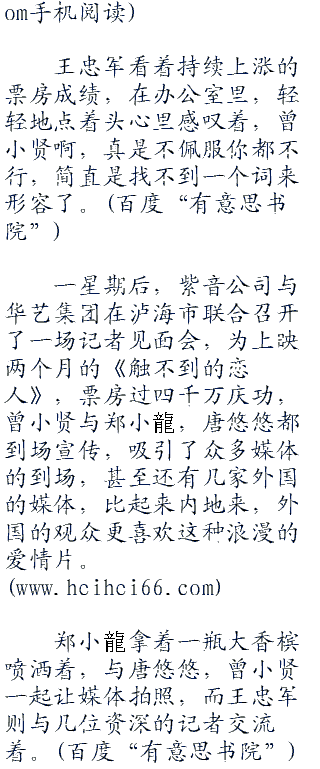 om手机阅读)
王忠军看着持续上涨的
票房成绩，在办公室里，轻
轻地点着头心里感叹着，曾
小贤啊，真是不佩服你都不
行，简直是找不到一个词来
形容了。(百度“有意思书
院”)
一星期后，紫音公司与
华艺集团在泸海市联合召开
了一场记者见面会，为上映
两个月的《触不到的恋
人》，票房过四千万庆功，
曾小贤与郑小龍，唐悠悠都
到场宣传，吸引了众多媒体
的到场，甚至还有几家外国
的媒体，比起来内地来，外
国的观众更喜欢这种浪漫的
爱情片。
(www.hcihci66.com)
郑小龍拿着一瓶大香槟
喷洒着，与唐悠悠，曾小贤
一起让媒体拍照，而王忠军
则与几位资深的记者交流
着。(百度“有意思书院”)